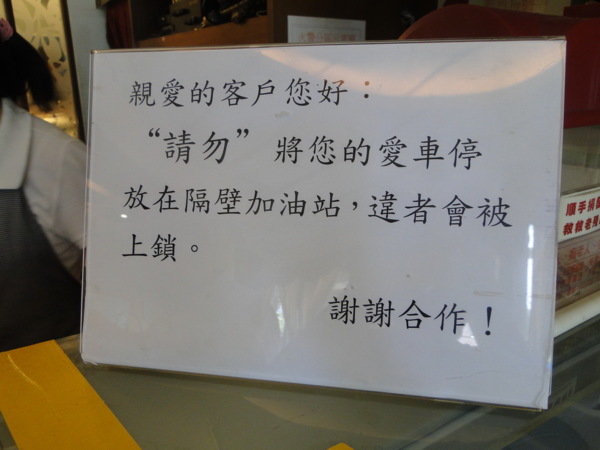 親愛的客戶您好：
“請勿”將您的愛車停
放在隔壁加油站，違者會被
上鎖。
謝謝合作！
順手捐
救救老